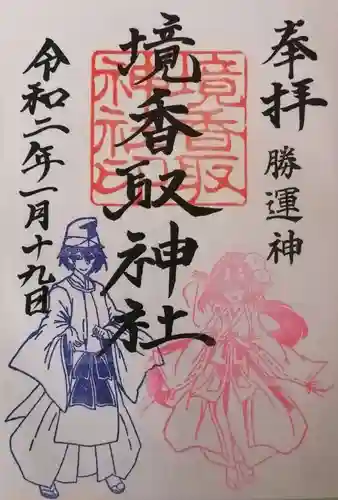 奉拝
勝運神
境香取神社
境香取
神社印
令和二年一月十九日